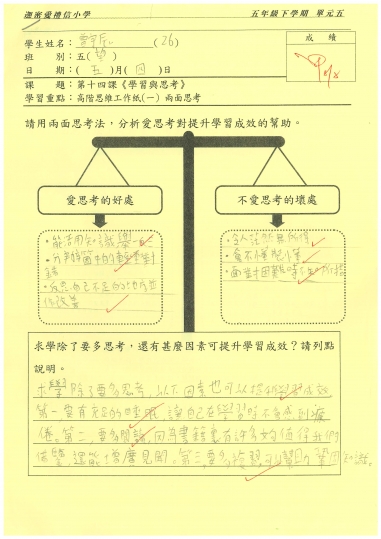 迦密愛禮信小學 五年級下學期 單元五
學生姓名： (26)
班 別：五(望)
日 期：(五)月(四)日
成 績
課 題：第十四課《學習與思考》
學習重點：高階思維工作紙(一) 兩面思考
請用兩面思考法，分析愛思考對提升學習成效的幫助。
愛思考的好處
不愛思考的壞處
•能活用知識，舉一反三
•分辨書中的
•反思自己不足的地方並
作改善
•令人茫然無所得
•會不懂裝懂
•面對困難時不
求學除了要多思考，還有甚麼因素可提升學習成效？請列點
說明。
求學除了要多思考，以下因素也可以提升學習成效
第一，當有充足的睡眠，讓自己在學習時不會感到疲
倦。第二，要多閱讀，因為書籍裏有許多文章值得我們
借鑒，還能增廣見聞。第三，要多複習，可以幫助鞏固知識。